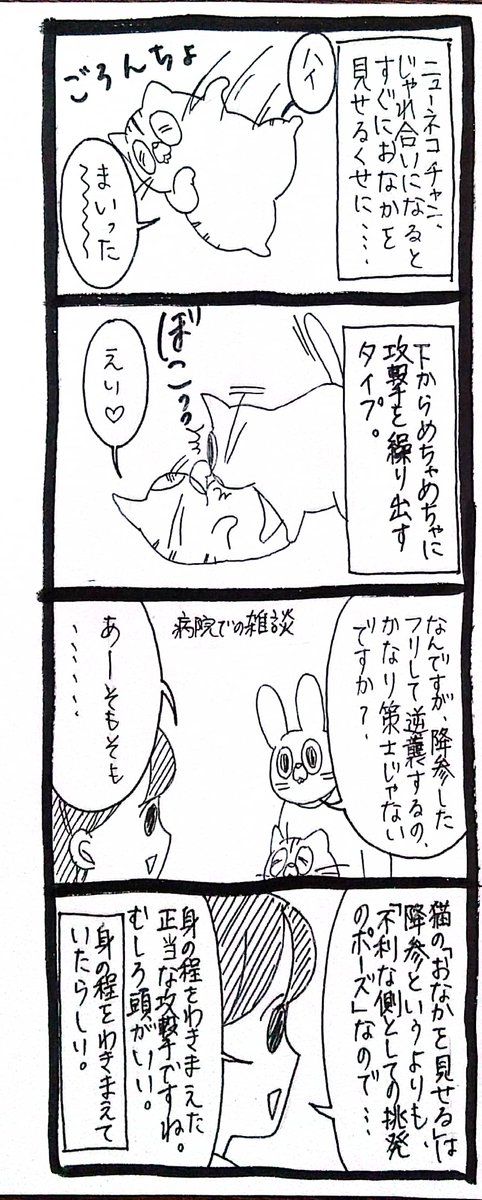 ニューネコチャン、
じゃれ合いになると
すぐにおなかを
見せるくせに‥‥
ハイ
ごろんちょ
まいった
下からめちゃめちゃに
攻撃を繰り出す
タイプ。
ぼこっっ
えい♡
なんですが、降参した
フリして逆襲するの、
かなり策士じゃない
ですか？
病院での雑談
あーそもそも
‥‥‥
猫の「おなかを見せる」は
降参というよりも、
「不利な側としての挑発
のポーズ」なので…
身の程をわきまえた
正当な攻撃ですね。
むしろ頭がいい。
身の程をわきまえて
いたらしい。